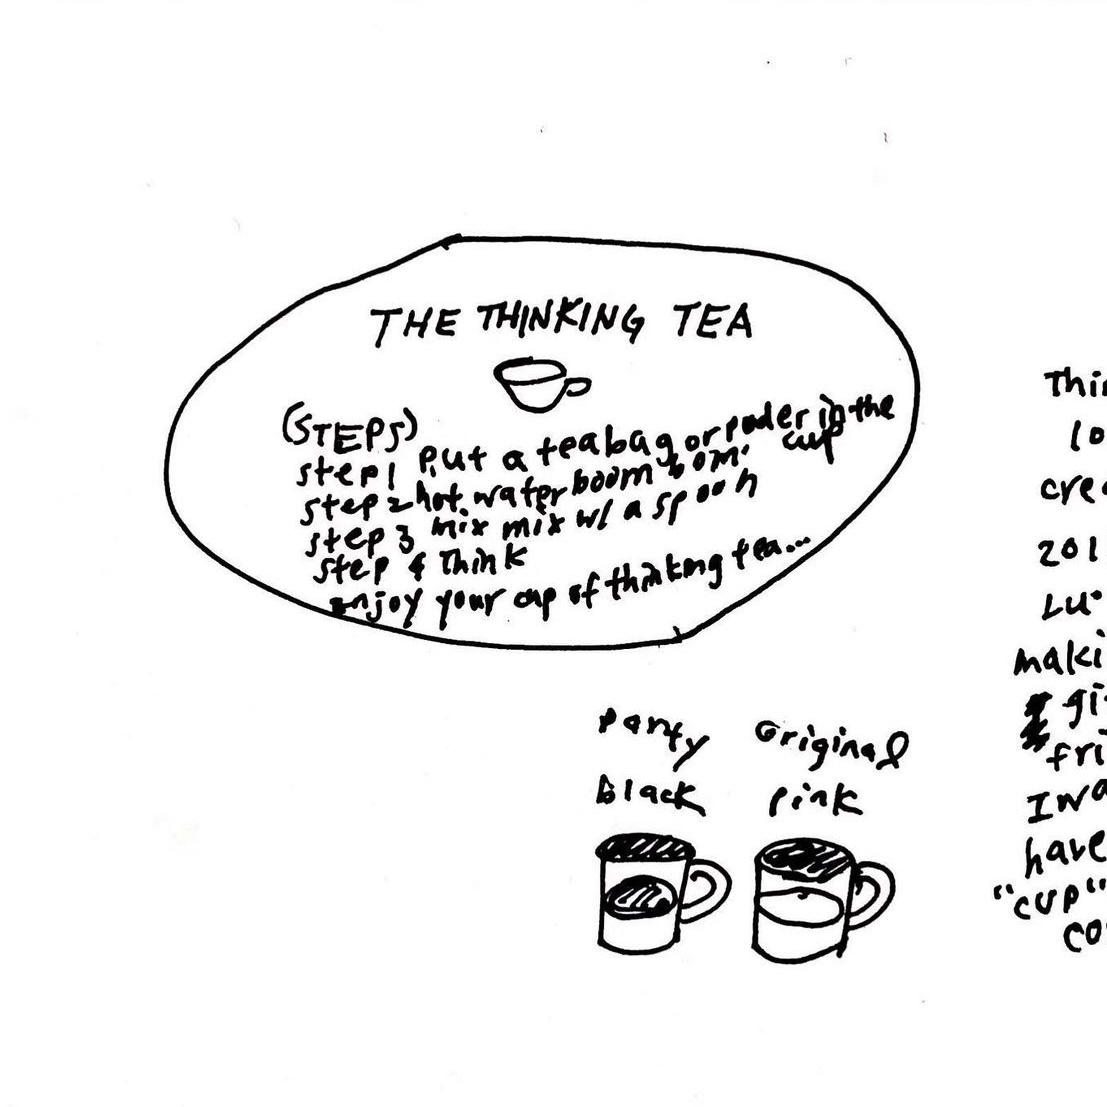 THE THINKING TEA
(STEPS)
step 1 put a teabag or poder in the
cup
step 2 hot water boom bom.
step 3 mix mix w/ a spoon
step 4 think
enjoy your cup of thinking tea...
party
black
original
pink
Thin
lo
crea
201
Lu
maki
gi
fri
I wa
have
"cup"
co